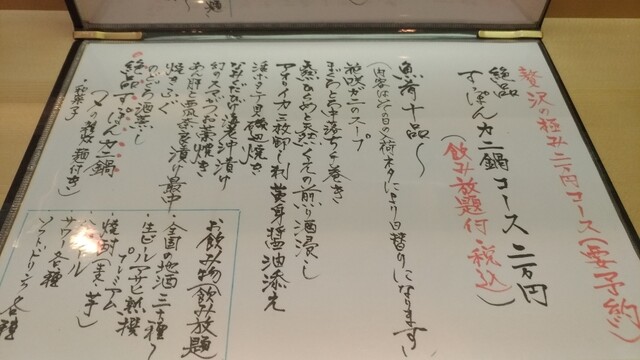 贅沢の極み二万円コース(要予約)
絶品
すっぽんカニ鍋コース二万円
(飲み放題付・税込)
魚肴十品〜
(内容はその日の荷、ネタにより日替りになります)
花咲ガニのスープ
まぐろとろ中落ち手巻き
黒ひらめと天然くえの煎り酒昆〆
アオリイカ三枚卸し刺 黄身醤油添え
活ホタテ貝磯辺焼き
なみだぴり海老沖漬け
幻のスギタケ松葉焼き
あん肝と奈良漬け最中
焼きふぐ
のどぐろ酒蒸し
絶品すっぽんカニ鍋
〆の雑炊(麺付き)
・和菓子
お飲み物(飲み放題)
・全国の地酒三十種〜
・生ビール(アサヒ熟撰
プレミアム
・焼酎(麦・芋)
ハイボール
サワー 各種
ソフトドリンク各種